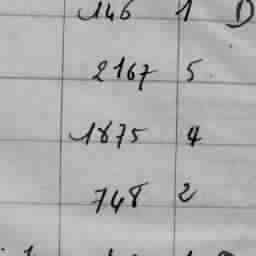 146 1 D
2167 5
1875 4
748 2